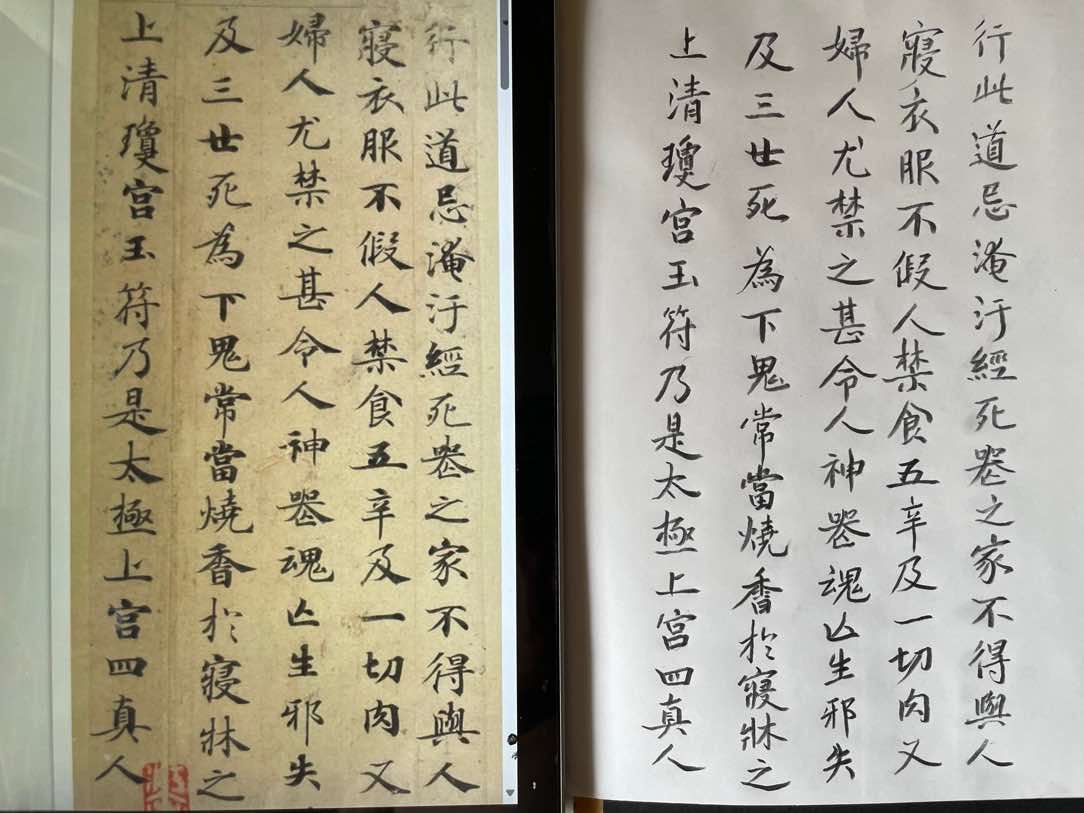 行此道忌淹汙經死喪之家不得與人
寢衣服不假人禁食五辛及一切肉又
婦人尤禁之甚令人神喪魂亡生邪失
及三世死為下鬼常當燒香於寢牀之
上清瓊宮玉符乃是太極上宮四真人
行此道忌淹汙經死喪之家不得與人
寢衣服不假人禁食五辛及一切肉又
婦人尤禁之甚令人神喪魂亡生邪失
及三世死為下鬼常當燒香於寢牀之
上清瓊宮玉符乃是太極上宮四真人